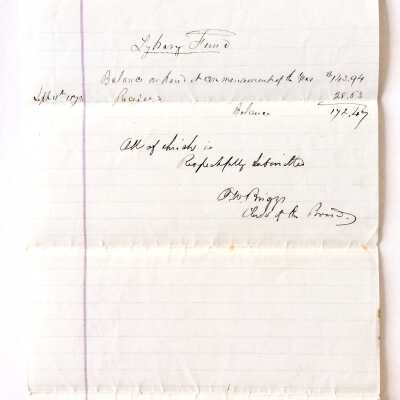 Lybary Fund
Balance on hand at commencement of the Year $143.94
Sept 4th Received 28.53
Balance 172.47
All of which is
Respectfully Submitted
Briggs
Clerk of the Board